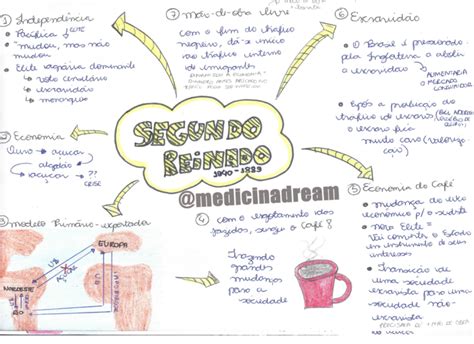 1 Independência
• Pacífica
• mudou, mas não mudou
• Elite agrária dominante
↳ voto censitário
↳ escravidão
↳ monarquia
2 Economia
Ouro → açúcar
algodão
açúcar → ??
CRISE
3 modelo Primário-exportador
EUROPA
NORDESTE
RJ
7 mão-de-obra livre
com o fim do tráfico
negreiro, dá-se início
ao tráfico interno
de imigrantes
SEGUNDO
REINADO
1840 - 1889
@medicinadream
4 com o esgotamento das
jazidas, surge o Café!
trazendo
grandes
mudanças
para a
sociedade
6 Escravidão
• O Brasil é pressionado
pela Inglaterra a abolir
a escravidão
AUMENTARIA
O MERCADO
CONSUMIDOR
• Após a proibição do
tráfico de escravos
o escravo fica
muito caro
5 Economia do Café
• mudança do eixo
econômico p/ o sudeste
• nova Elite =
Vai converter o Estado
em instrumento de seus
interesses
• Transição de
uma sociedade
escravista para uma
sociedade não-
escravista